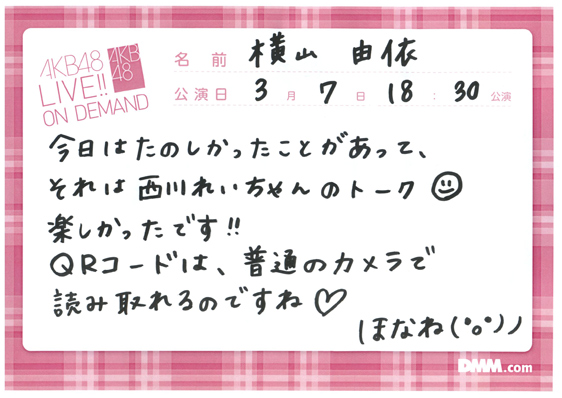 AKB48
LIVE!!
ON DEMAND
AKB
48
名前 横山 由依
公演日 3月 7日 18:30公演
今日はたのしかったことがあって、
それは西川れいちゃんのトーク☺
楽しかったです!!
QRコードは、普通のカメラで
読み取れるのですね♡
ほなね(°o°)ノ
DMM.com